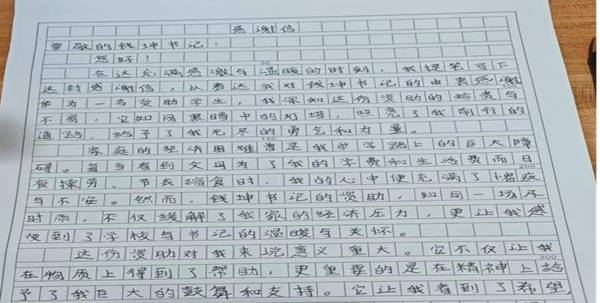 感谢信
尊敬的钱坤书记:
您好!
在这充满感激与温暖的时刻,我提笔写下
这封感谢信,以表达我对钱坤书记的由衷感谢
作为一名受助学生,我深知这份资助的珍贵与
不易,它如同黑暗中的灯塔,照亮了我前行的
道路,给予了我无尽的勇气和力量。
家庭的经济困难曾是我求学路上的巨大障
碍。每当看到父母为了我的学费和生活费而日
夜操劳、节衣缩食时,我的心中便充满了愧疚
与不安。然而,钱坤书记的资助,如同一场及
时雨,不仅缓解了我家的经济压力,更让我感
受到了学校与书记的温暖与关怀。
这份资助对我来说意义重大。它不仅让我
在物质上得到了帮助,更重要的是在精神上给
予了我巨大的鼓舞和支持。它让我看到了希望